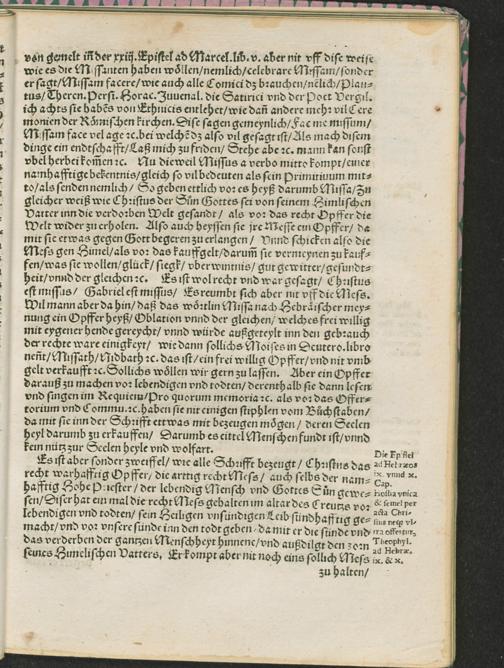 von gemelt iñ der xxiij. Epistel ad Marcel. lib. v. aber nit vff dise weise
wie es die Missanten haben wöllen/nemlich/celebrare Missam/sonder
er sagt/Missam facere/wie auch alle Comici dz brauchen/nēlich/Plau-
tus/Theren. Persi. Horac. Juuenal. die Satirici vnd der Poet Vergil.
ich achts sie habēs von Ethnicis entlehet/wie dañ andere mehr vil Cere
monien der Römischen kirchen. Dise sagen gemeynlich/Fac me missum/
Missam face vel age ꝛc. bei welchē dz also vil gesagt ist/Als mach disem
dinge ein endtschafft/Laß mich zu friden/Stehe abe ꝛc. mann kan sonst
vbel herbei kom̄en ꝛc. Nu die weil Missus a verbo mitto kompt/euer
namhafftige bekentnis/gleich so vil bedeuten als sein Primitiuum mit-
to/als senden nemlich/So geben ettlich vor es heyß darumb Missa/Zu
gleicher weiß wie Christus der Sūn Gottes sei von seinem Himlischen
Vatter inn die verdorben Welt gesandt/ als vor das recht Opffer die
Welt wider zu erholen. Also auch heyssen sie jre Messe ein Opffer/ da
mit sie etwas gegen Gott begeren zu erlangen/ Vnnd schicken also die
Mess gen Himel/als vor das kauffgelt/darum̄ sie vermeynen zu kauf-
fen/was sie wollen/glück/ siegk/ vberwintnis/gut gewitter/gesundt-
heit/vnnd der gleichen ꝛc. Es ist wol recht vnd war gesagt/ Christus
est missus/ Gabriel est missus/ Es reumbt sich aber nit vff die Mess.
Wil mann aber da hin/daß das wörtlin Missa nach Hebräischer mey-
nung ein Opffer heyß/Oblation vnnd der gleichen/welches frei willig
mit eygener hende gereycht/vnnd würde außgeteylt inn den gebrauch
der rechte ware einigkeyt/ wie dann sollichs Moises in Deutero. libro
nen̄t/Missath/Nidbath ꝛc. das ist/ein frei willig Opffer/vnd nit vmb
gelt verkaufft ꝛc. Sollichs wöllen wir gern zu lassen. Aber ein Opffer
darauß zu machen vor lebendigen vnd todten/derenthalb sie dann lesen
vnd singen im Requiem/Pro quorum memoria ꝛc. als vor das Offer-
torium vnd Commu. ꝛc. haben sie nit einigen stiphlen vom Bůchstaben/
da mit sie inn der Schrifft ettwas mit bezeugen mögen/ deren Seelen
heyl darumb zu erkauffen/ Darumb es eittel Menschen fundt ist/vnnd
kein nütz zur Seelen heyle vnd wolfart.
Es ist aber sonder zweiffel/wie alle Schrifft bezeugt/Christus das
recht warhafftig Opffer/die arttig recht Mess/ auch selbs der nam-
hafftig Hohe Priester/ der lebendig Mensch vnd Gottes Sūn gewe-
sen/Diser hat ein mal die recht Mess gehalten im altar des Creutzs vor
lebendigen vnd todten/ sein Heiligen vnsündigen Leib sündhafftig ge-
macht/vnd vor vnsere sünde inn den todt geben/da mit er die sünde vnd
das verderben der gantzen Menschheyt hinnene/vnd außdilgt den zorn
seines Himelischen Vatters. Er kompt aber nit noch eins sollich Mess
zu halten/
Die Epistel
ad Hebræos
ix. vnnd x.
Cap.
Hostia vnica
& semel per
acta Chri-
stus neqꝫ vl-
tra offertur,
Theophyl.
ad Hebræ.
ix. & x.